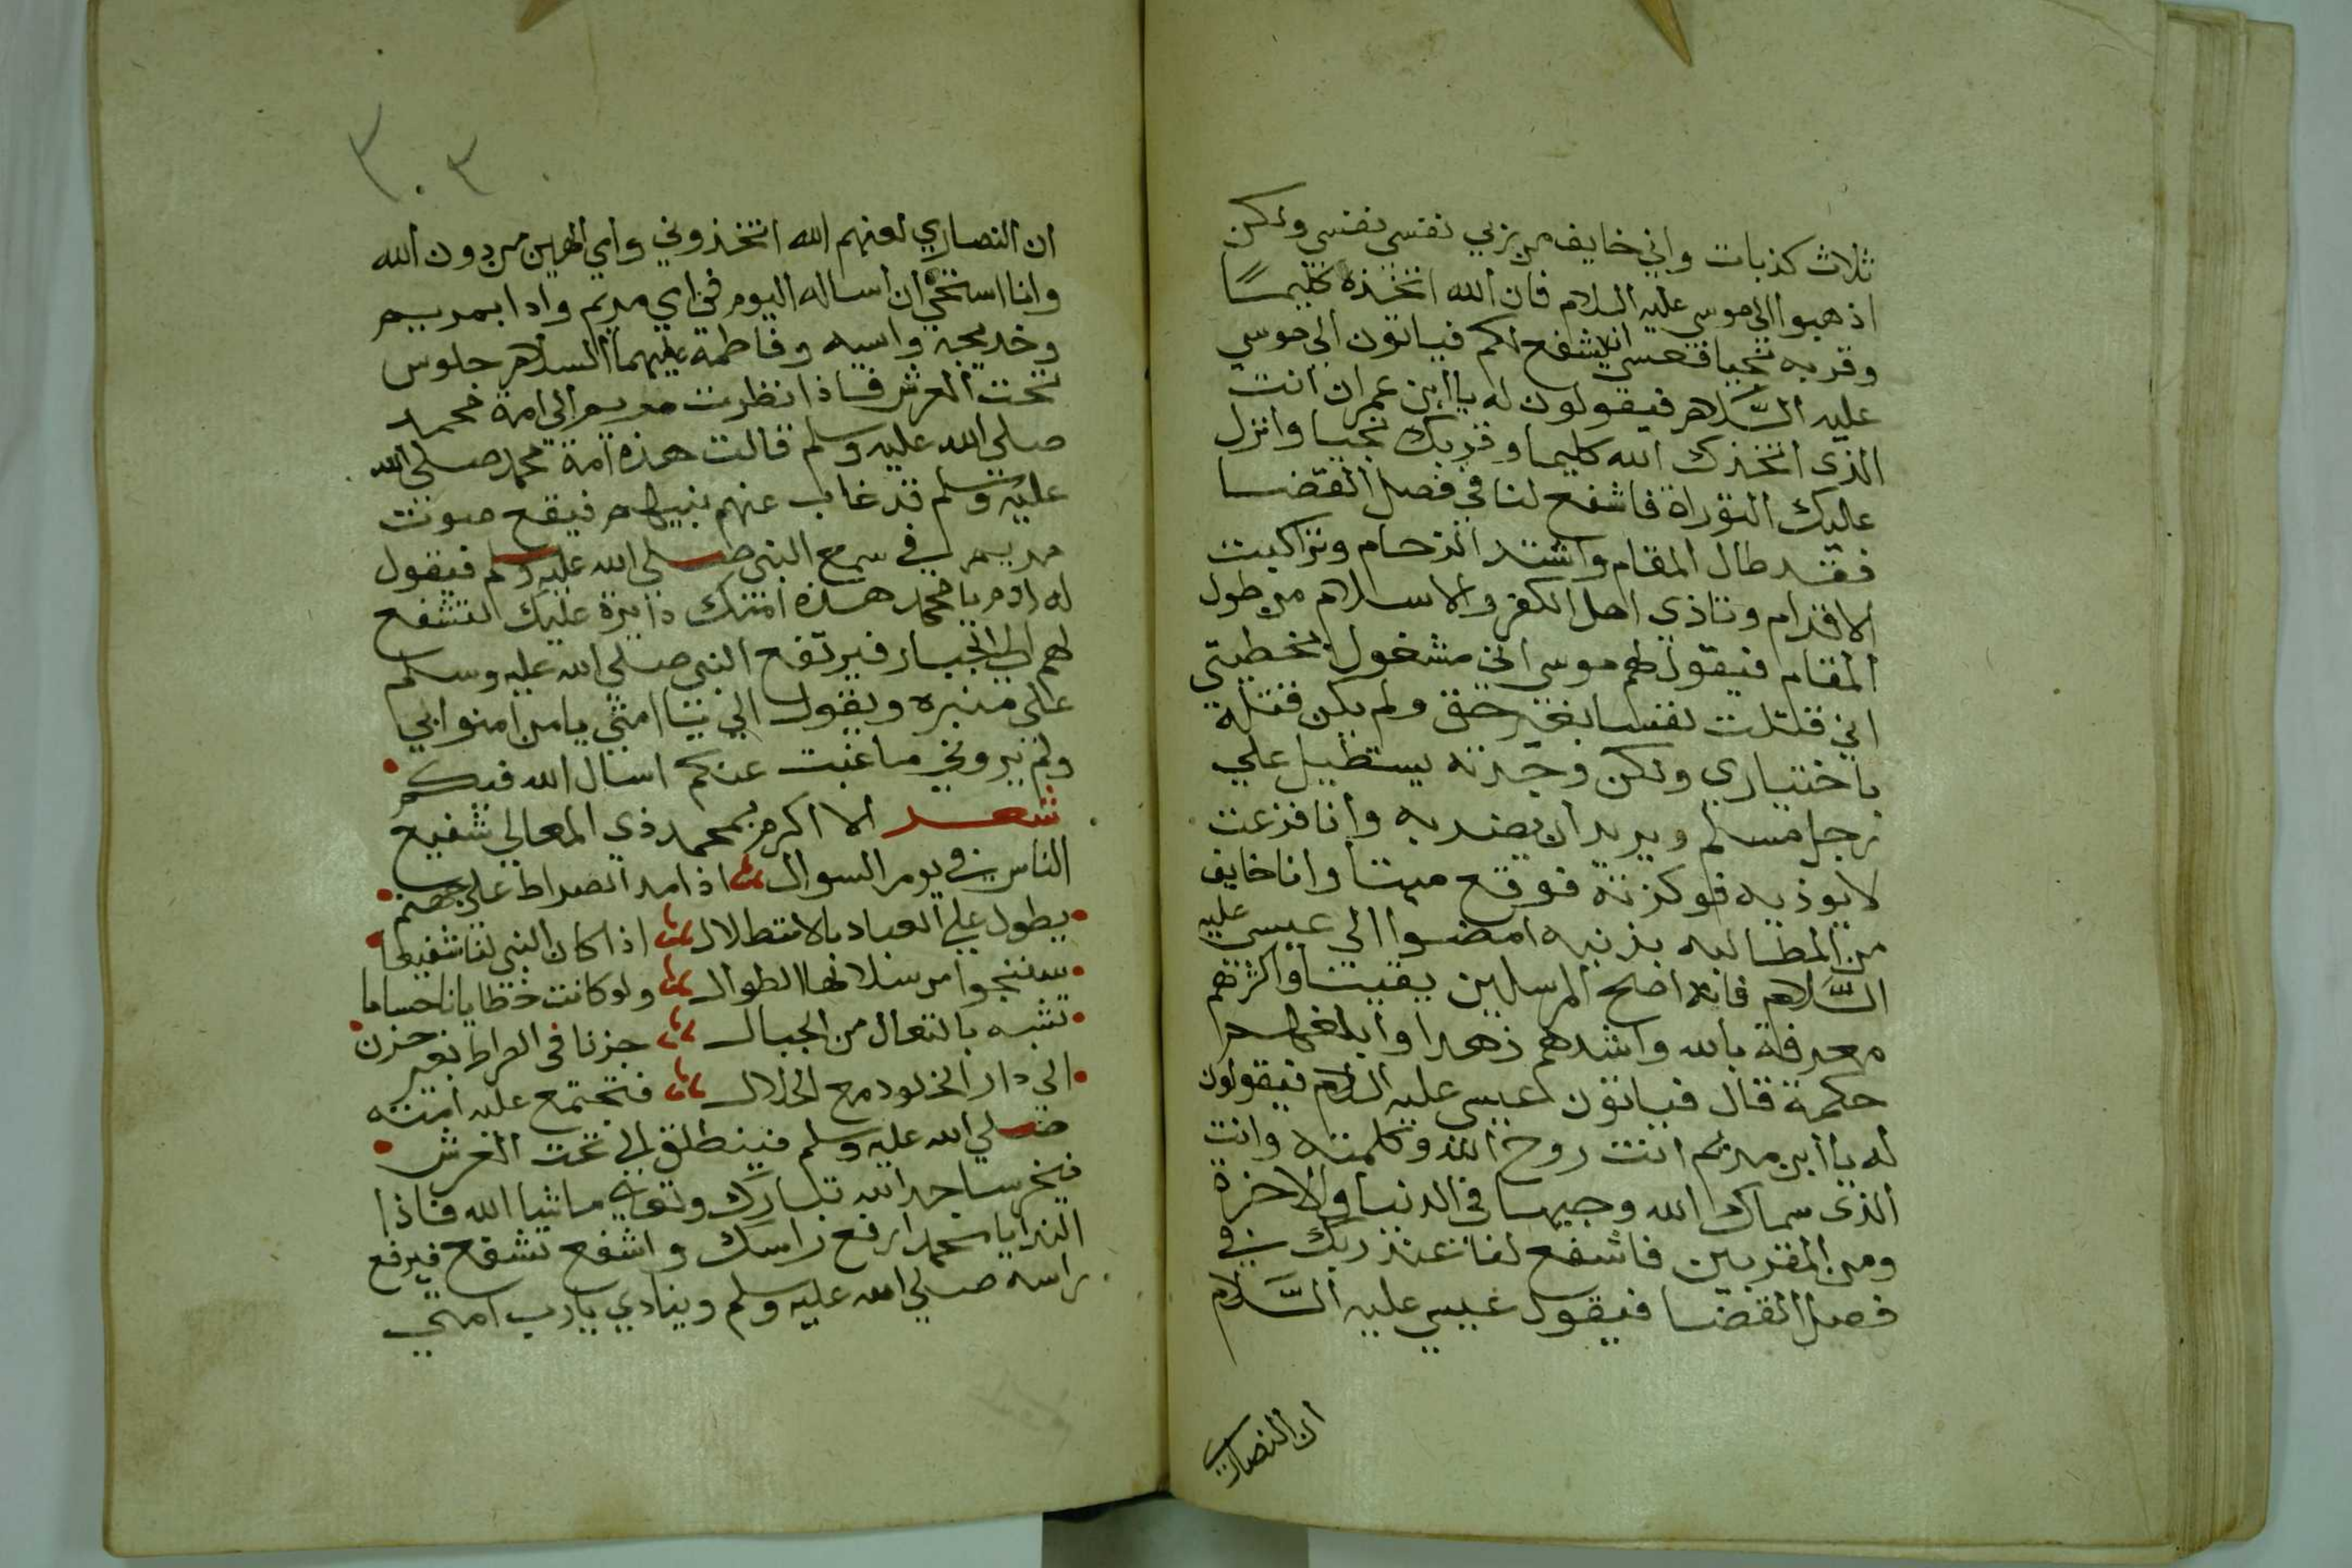 ثلاث كذبات واني خايف من ربي نفسي نفسي ولكن
اذهبوا الي موسي عليه السلام فان الله اتخذه كليمًا
وقربه نجيا فعسي انه يشفع لكم فياتون الي موسي
عليه السَّلام فيقولون له يا ابن عمران انت
الذي اتخذك الله كليما وقربك نجيا وانزل
عليك التوراة فاشفع لنا في فصل القضا
فقد طال المقام واشتد الزحام وتراكبت
الاقدام وتاذي اهل الكفر والاسلام من طول
المقام فيقول لهم موسي اني مشغول بخطيتي
اني قتلت نفسا بغير حق ولم يكن قتله
باختياري ولكن وجدته يستطيل علي
رجل مسلم ويريد ان يضربه وانا فزعت
لا يوذيه فوكزته فوقع ميتا وانا خايف
من المطالبه بذنبه امضوا الي عيسي عليه
السَّلام فانه اصلح المرسلين يقينا واكثرهم
معرفة بالله واشدهم زهدا وابلغهم
حكمة قال فياتون عيسي عليه السلام فيقولون
له يا ابن مريم انت روح الله وكلمته وانت
الذي سماك الله وجيها في الدنيا والاخرة
ومن المقربين فاشفع لنا عند ربك في
فصل القضا فيقول عيسي عليه السَّلام
ان النصاري
٣٠٣
ان النصاري لعنهم الله اتخذوني وامي الهين من دون الله
وانا استحي ان اساله اليوم في امي مريم واذا بمريم
وخديجه واسيه وفاطمة عليهما السلام جلوس
تحت العرش فاذا نظرت مريم الي امة محمد
صلي الله عليه وسلم قالت هذه امة محمد صلي الله
عليه وسلم قد غاب عنهم نبيهم فيقع صوت
مريم في سمع النبي صلي الله عليه وسلم فيقول
له ادم يا محمد هذه امتك دايرة عليك لتشفع
لهم الي الجبار فيرتفع النبي صلي الله عليه وسلم
علي منبره ويقول الي يا امتي يا من امنوا بي
ولم يروني ما غبت عنكم اسال الله فيكم
شعر الا اكرم بمحمد ذي المعالي شفيع
الناس في يوم السوال اذا مد الصراط علي جهنم
يطول علي العباد بالانتطلال اذا كان النبي لنا شفيعا
سننجوا من سلا لها الطوال ولو كانت خطايانا حساما
تشبه بالتعال من الجبال جزنا في الصراط بغير حزن
الي دار الخلود مع الحلال فتجتمع عليه امته
صلي الله عليه وسلم فينطلق الي تحت العرش
فيخر ساجدا لله تبارك وتعالي ما شا الله فاذا
الندا يا محمد ارفع راسك واشفع تشفع فيرفع
راسه صلي الله عليه وسلم وينادي يا رب امتي